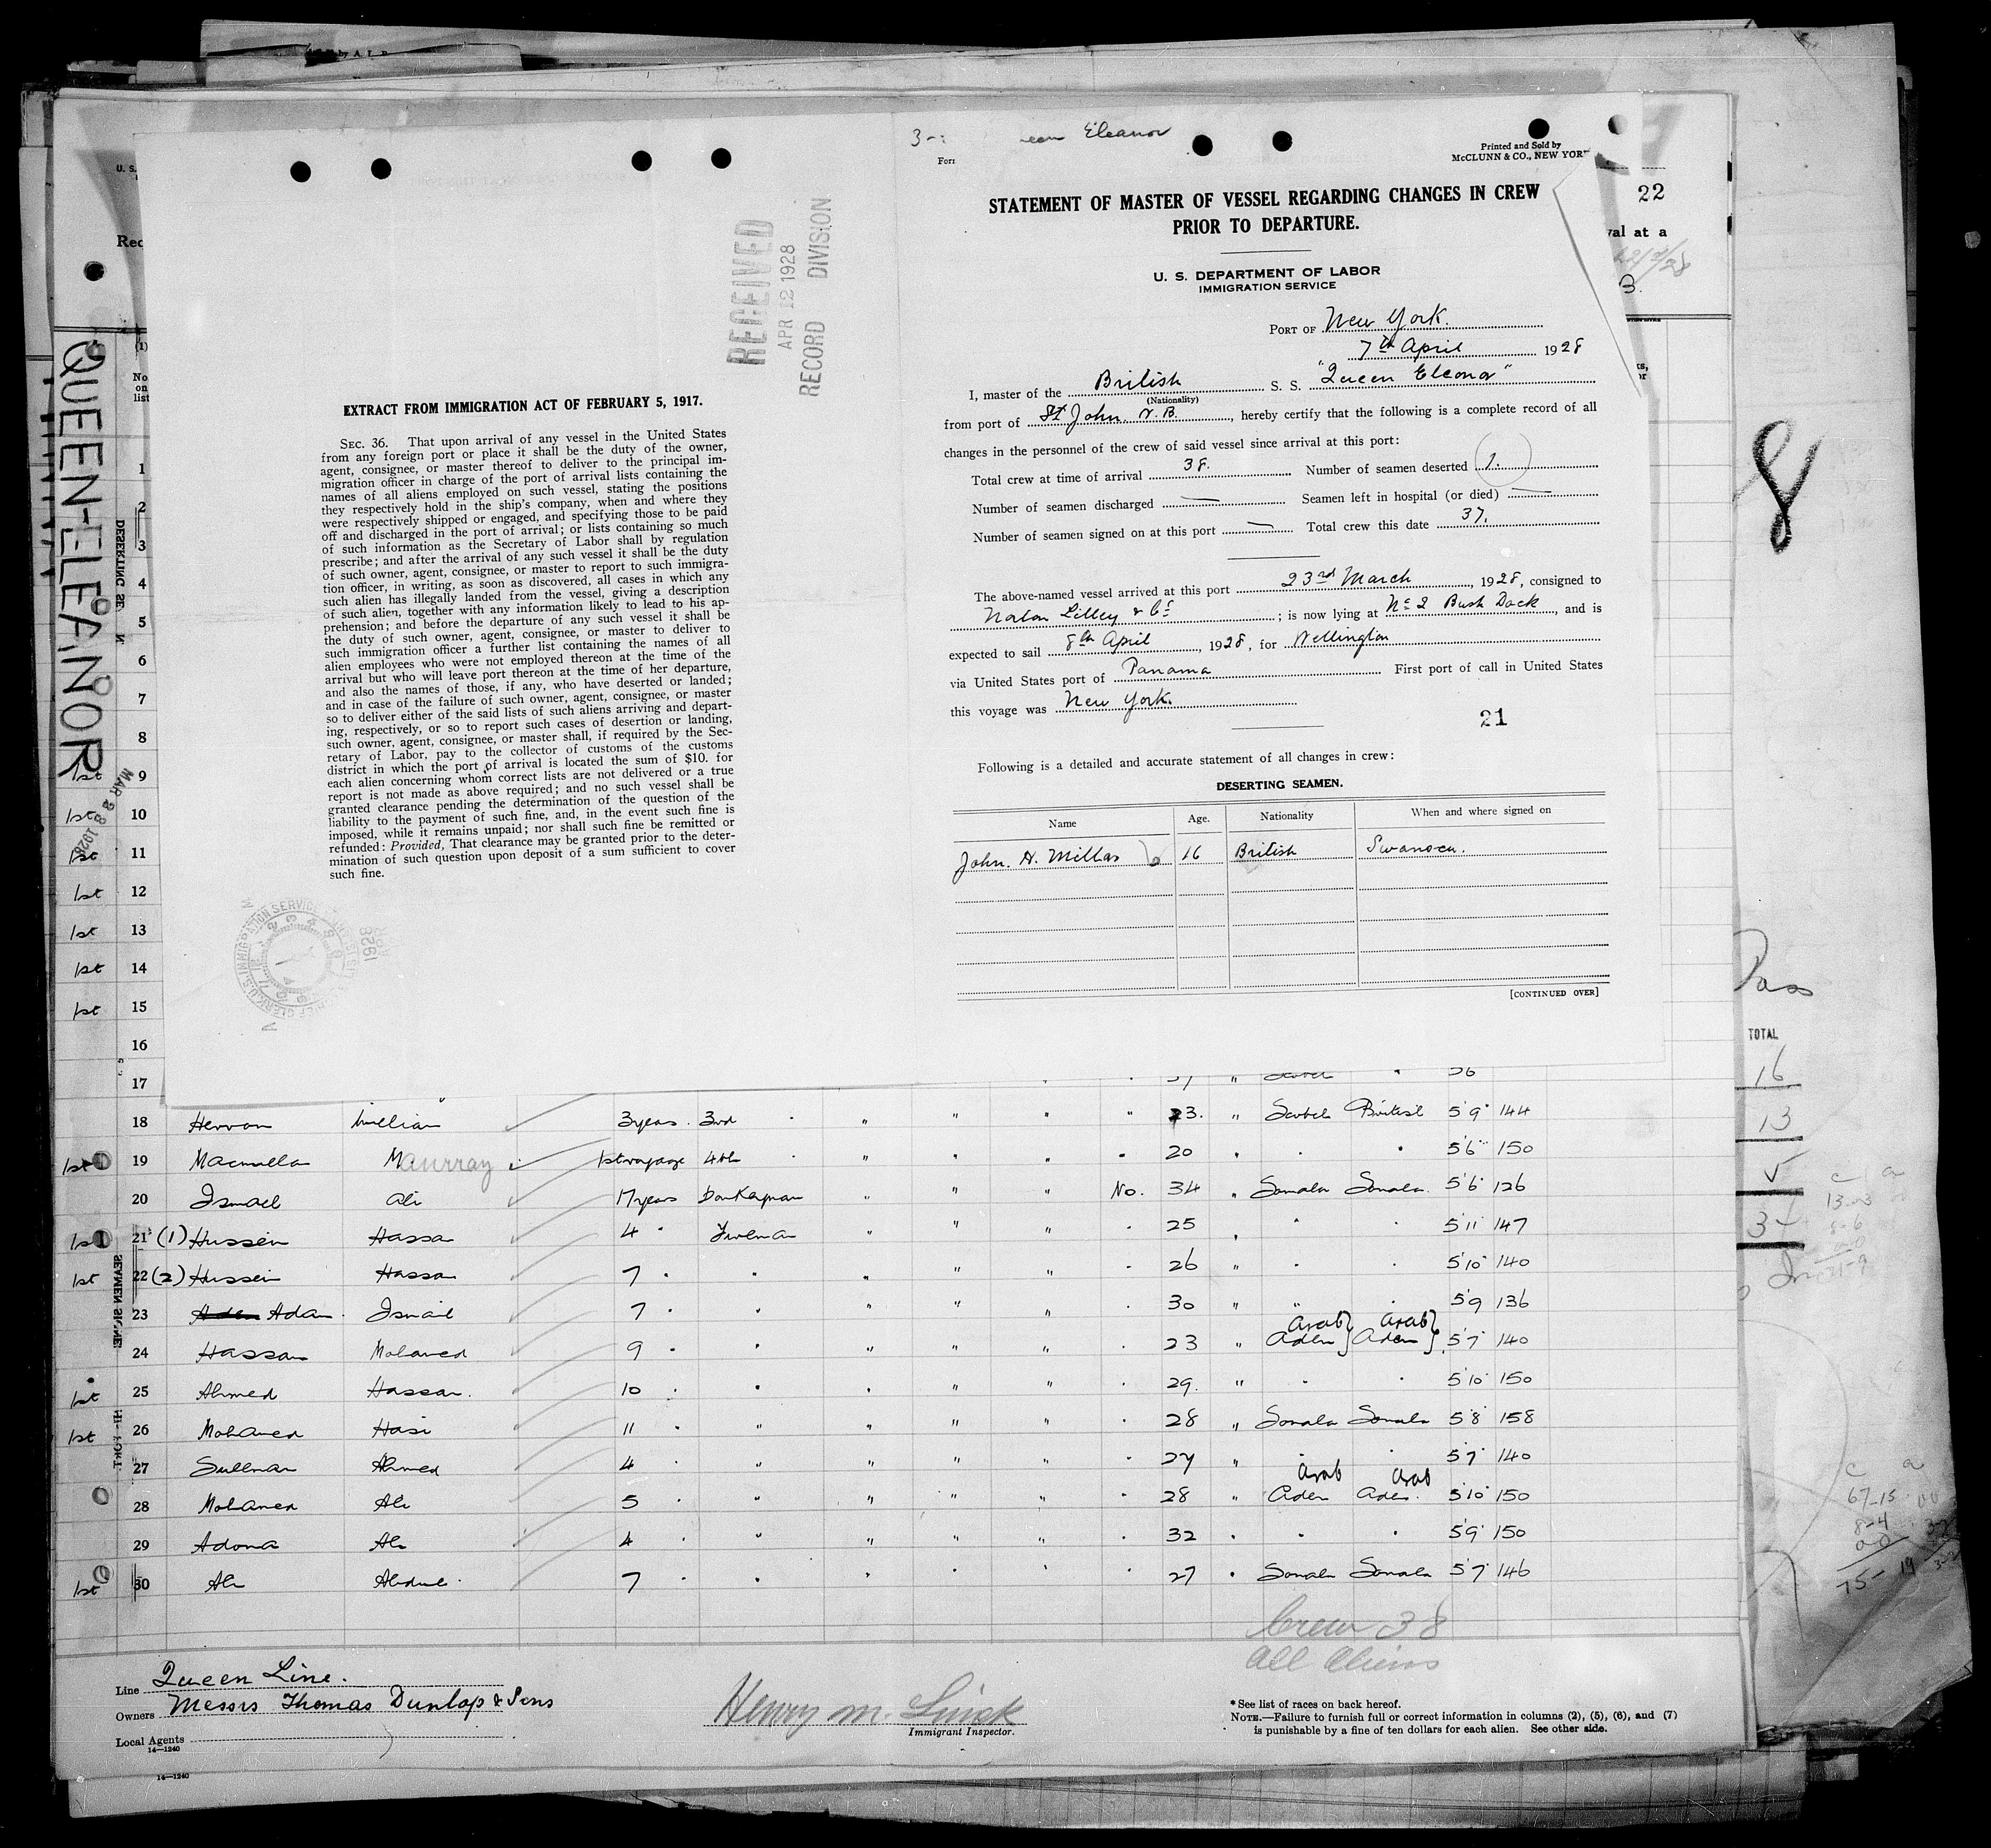 by A. L. P
U. S.
Rec
QUEEN-ELEANOR
(1)
No
on
list
RECEIVED
APR 12 1928
RECORD DIVISION
EXTRACT FROM IMMIGRATION ACT OF FEBRUARY 5, 1917.
SEC. 36. That upon arrival of any vessel in the United States
from any foreign port or place it shall be the duty of the owner,
agent, consignee, or master thereof to deliver to the principal im-
migration officer in charge of the port of arrival lists containing the
names of all aliens employed on such vessel, stating the positions
they respectively hold in the ship's company, when and where they
were respectively shipped or engaged, and specifying those to be paid
off and discharged in the port of arrival; or lists containing so much
of such information as the Secretary of Labor shall by regulation
prescribe; and after the arrival of any such vessel it shall be the duty
of such owner, agent, consignee, or master to report to such immigra-
tion officer, in writing, as soon as discovered, all cases in which any
such alien has illegally landed from the vessel, giving a description
of such alien, together with any information likely to lead to his ap-
prehension; and before the departure of any such vessel it shall be
the duty of such owner, agent, consignee, or master to deliver to
such immigration officer a further list containing the names of all
alien employees who were not employed thereon at the time of the
arrival but who will leave port thereon at the time of her departure,
and also the names of those, if any, who have deserted or landed;
and in case of the failure of such owner, agent, consignee, or master
so to deliver either of the said lists of such aliens arriving and depart-
ing, respectively, or so to report such cases of desertion or landing,
such owner, agent, consignee, or master shall, if required by the Sec-
retary of Labor, pay to the collector of customs of the customs
district in which the port of arrival is located the sum of $10. for
each alien concerning whom correct lists are not delivered or a true
report is not made as above required; and no such vessel shall be
granted clearance pending the determination of the question of the
liability to the payment of such fine, and, in the event such fine is
imposed, while it remains unpaid; nor shall such fine be remitted or
refunded: Provided, That clearance may be granted prior to the deter-
mination of such question upon deposit of a sum sufficient to cover
such fine.
Eleanor
Printed and Sold by
McCLUNN & CO., NEW YORK
STATEMENT OF MASTER OF VESSEL REGARDING CHANGES IN CREW
PRIOR TO DEPARTURE.
U. S. DEPARTMENT OF LABOR
IMMIGRATION SERVICE
PORT OF New York.
7th April 1928
I, master of the British S. S. "Queen Eleanor"
(Nationality)
from port of St John. N.B., hereby certify that the following is a complete record of all
changes in the personnel of the crew of said vessel since arrival at this port:
Total crew at time of arrival 38. Number of seamen deserted 1.
Number of discharged — Seamen left in hospital (or died) —
Number of seamen signed on at this port — Total crew this date 37.
The above-named vessel arrived at this port 23rd March, 1928, consigned to
Norton Lilley & Co; is now lying at No 2 Bush Dock, and is
expected to sail 8th April, 1928, for Wellington
via United States port of Panama First port of call in United States
this voyage was New York.
21
Following is a detailed and accurate statement of all changes in crew:
DESERTING SEAMEN.
Name Age. Nationality When and where signed on
John. H. Millar 16 British Swansea.
[CONTINUED OVER]
22
val at a
8
Pass
TOTAL
16
13
MAR 28 1928
1
2
3
4
5
6
7
8
1st 9
1st 10
1st 11
1st 12
1st 13
1st 14
1st 15
16
17
18 Herron William 3 years. 3rd " " " " 23. " Scotch British 5'9" 144
1st 19 Macmillan Murray 1st voyage 4th " " " " 20 " " " 5'6" 150
20 Ismael Ali 17 years Donkeyman " " " No. 34 " Somala Somala 5'6" 126
1st 21 (1) Hussein Hassan 4 " Fireman " " " " 25 " " " 5'11" 147
1st 22 (2) Hussein Hassan 7 " " " " " " 26 " " " 5'10" 140
23 Aden Adan Ismail 7 " " " " " " 30 " " " 5'9 136
Arab Arab
24 Hassan Mohamed 9 " " " " " " 23 " Aden Aden 5'7" 140
1st 25 Ahmed Hassan. 10 " " " " " " 29. " " " 5'10" 150
1st 26 Mohamed Hasi 11 " " " " " " 28 " Somala Somala 5'8" 158
27 Sullman Ahmed 4 " " " " " " 27 " " " 5'7" 140
Arab Arab
28 Mohamed Ali 5 " " " " " " 28 " Aden Aden. 5'10" 150
29 Adona Ali 4 " " " " " " 32 " " " 5'9" 150
1st 30 Ali Abdul 7 " " " " " " 27 " Somala Somala 5'7" 146
Crew 38
All Aliens
Line Queen Line.
Owners Messrs Thomas Dunlop & Sons
Local Agents
14—1240
14—1240
Henry M.
Immigrant Inspector.
* See list of races on back hereof.
NOTE.—Failure to furnish full or correct information in columns (2), (5), (6), and (7)
is punishable by a fine of ten dollars for each alien. See other side.